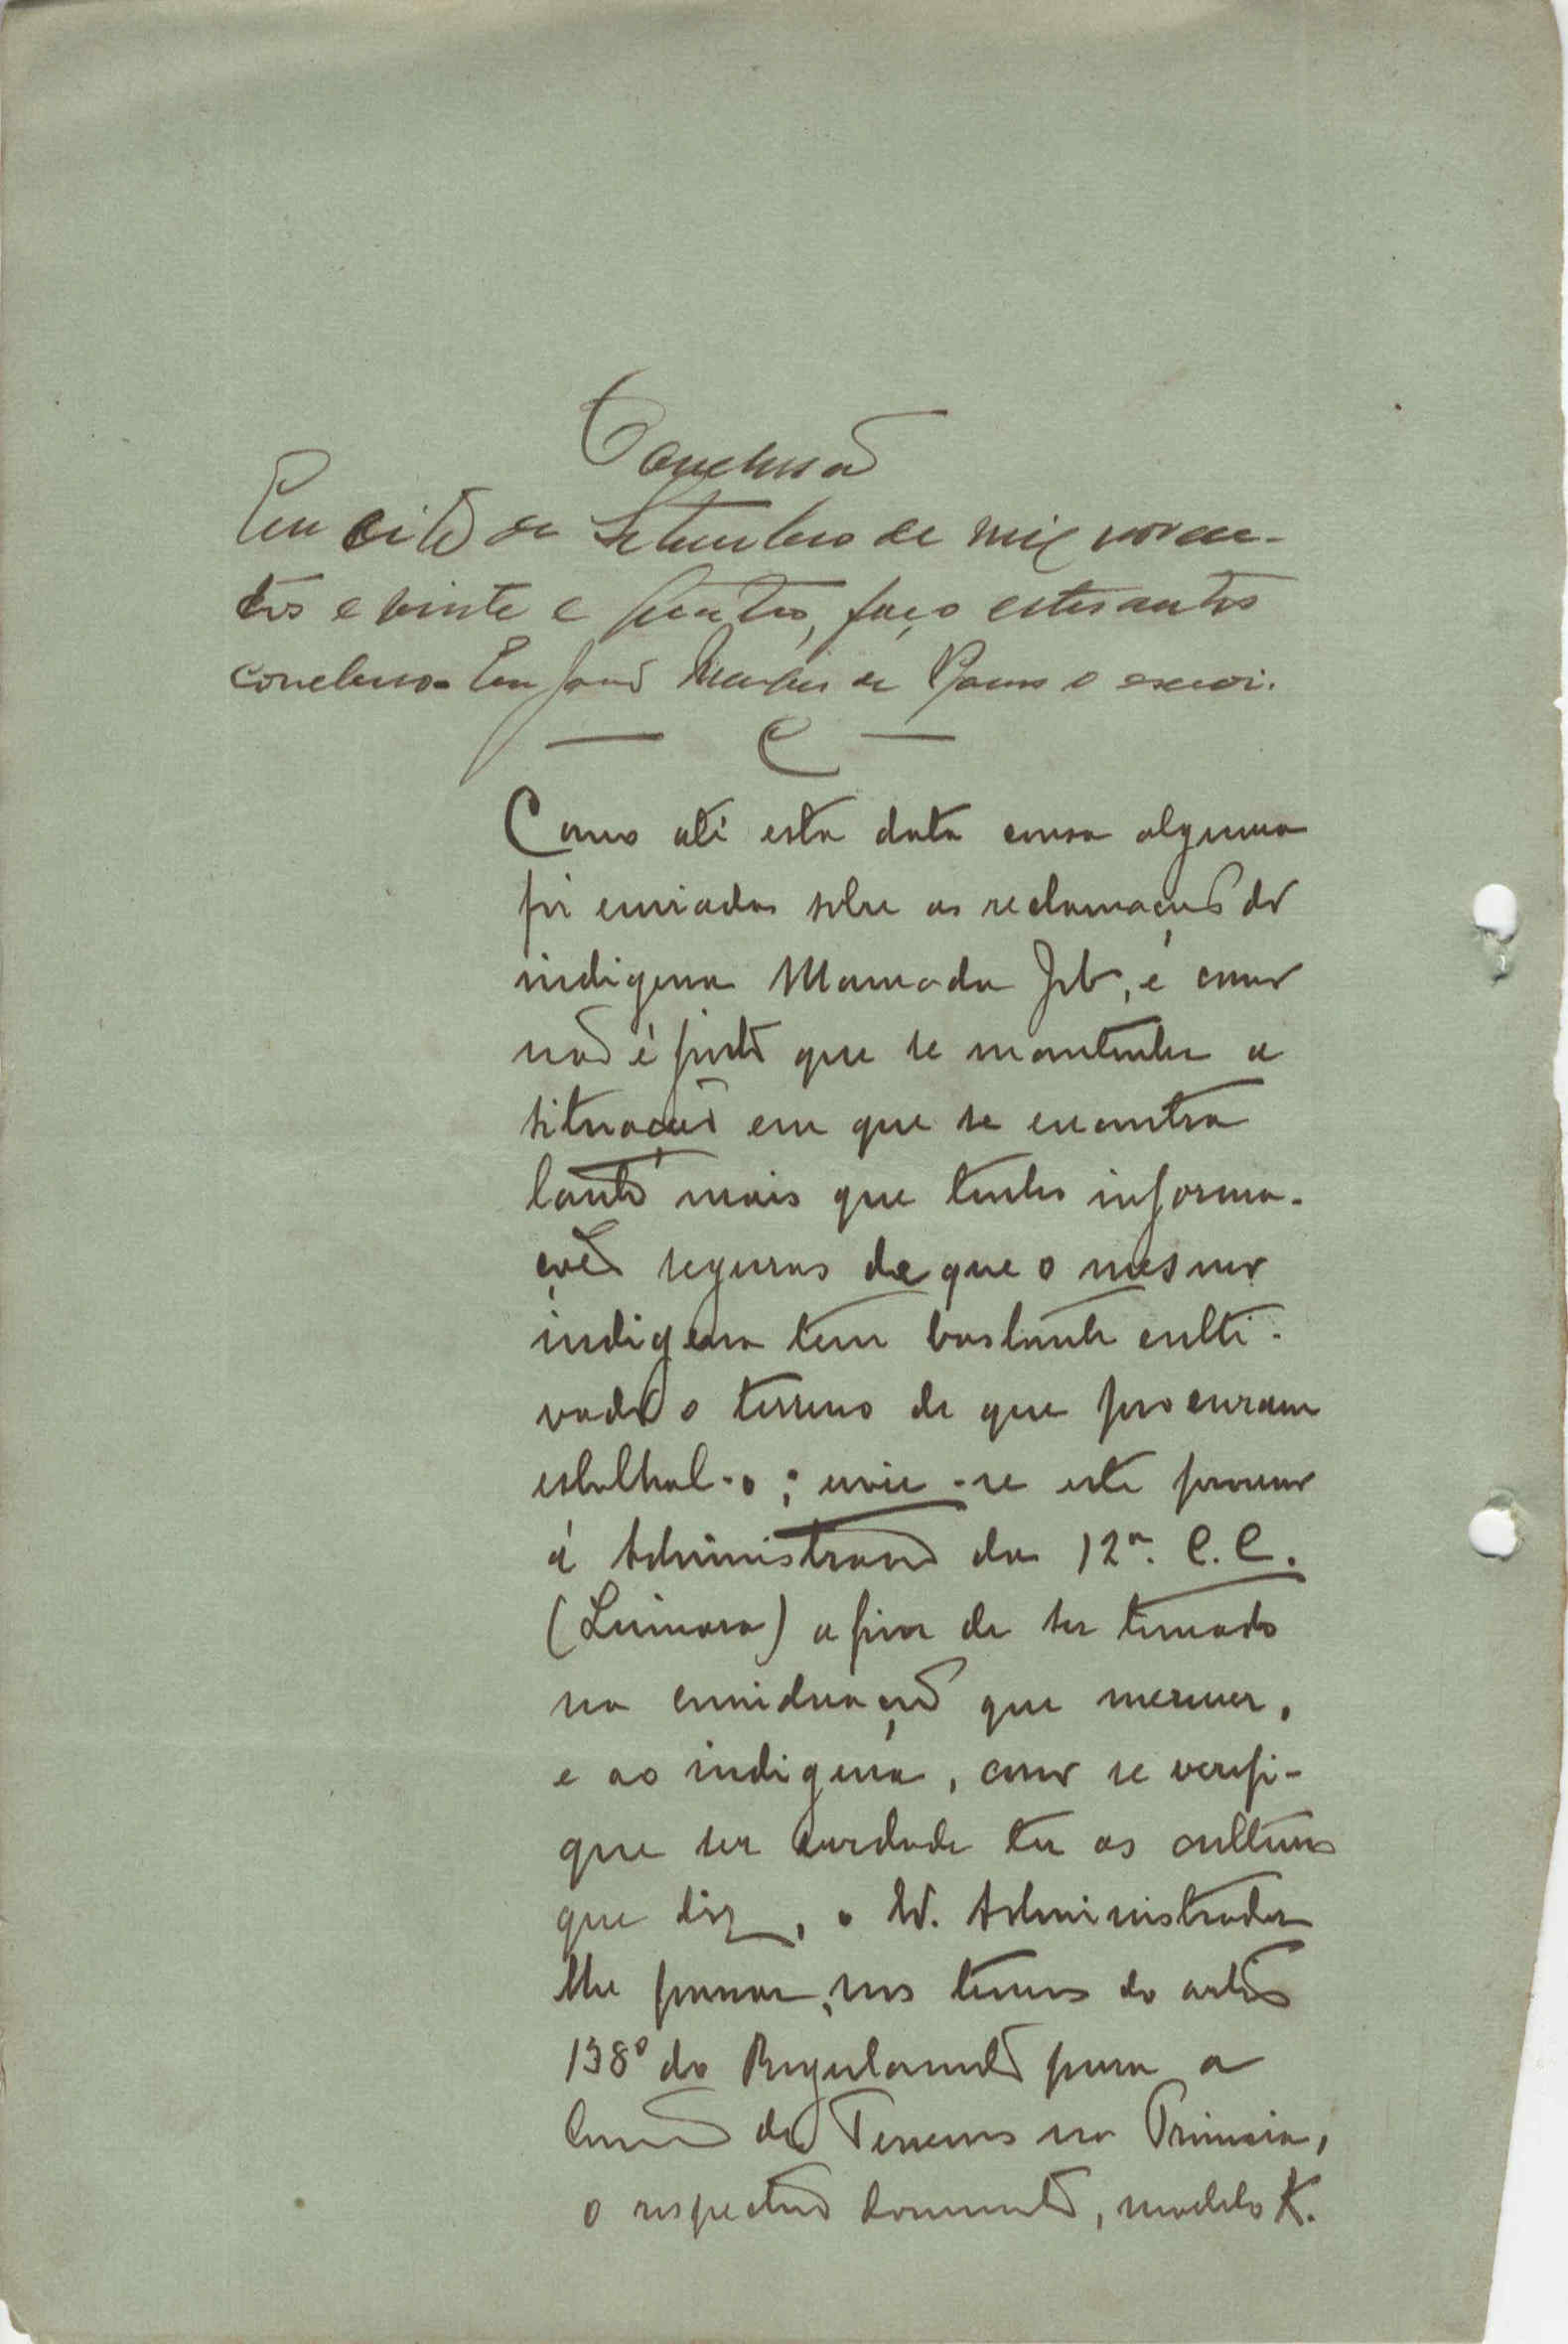 Conclusão
Em oito de Setembro de mil novecen-
tos e vinte e quatro, faço estes autos
conclusos. Eu João de o escrevi.
— C —
Como até esta data cousa alguma
foi enviada sobre as reclamações do
indigena Mamadu , e como
não é justo que se mantenha a
situação em que se encontra
tanto mais que tenho informa-
ções seguras de que o mesmo
indigena tem bastante culti-
vado o terreno de que procuram
esbulhal-o; envie-se este processo
á Administração da 12ª. C. C.
( ) a fim de ser tomado
na consideração que merecer,
e ao indigena, caso se verifi-
que ser verdade ter as culturas
que diz, o Administrador
lhe passar, nos termos do artigo
138º do Regulamento para a
Concessão de Terrenos na Provincia,
o respectivo documento, modelo K.